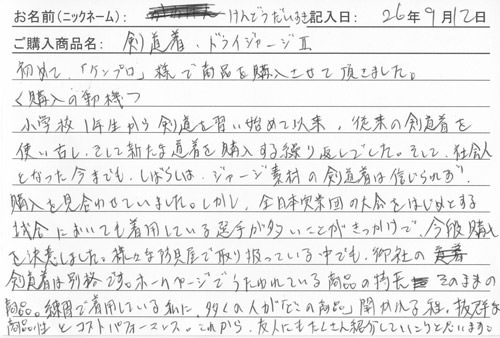 お名前(ニックネーム): けんどうだいすき 記入日: 26年9月12日
ご購入商品名: 剣道着・ドライジャージⅡ
初めて、「ケンプロ」様で商品を購入させて頂きました。
<購入の動機>
小学校1年生から剣道を習い始めて以来、従来の剣道着を
使い古し、そして新たな道着を購入する繰り返しでした。そして、社会人
となった今までも、しばらくは、ジャージ素材の剣道着は信じられず、
購入を見合わせていました。しかし、全日本実業団の大会をはじめとする
試合においても着用している選手が多いことがきっかけで、今般購入
を決意しました。様々な防具屋で取り扱っている中でも、御社の
剣道着は別格です。ホームページでうたわれている商品の特長そのままの
商品。練習で着用している私に、多くの人が「どこの商品」聞かれる程、抜群な
商品性とコストパフォーマンス。これから、友人にもたくさん紹介していこうと思います。